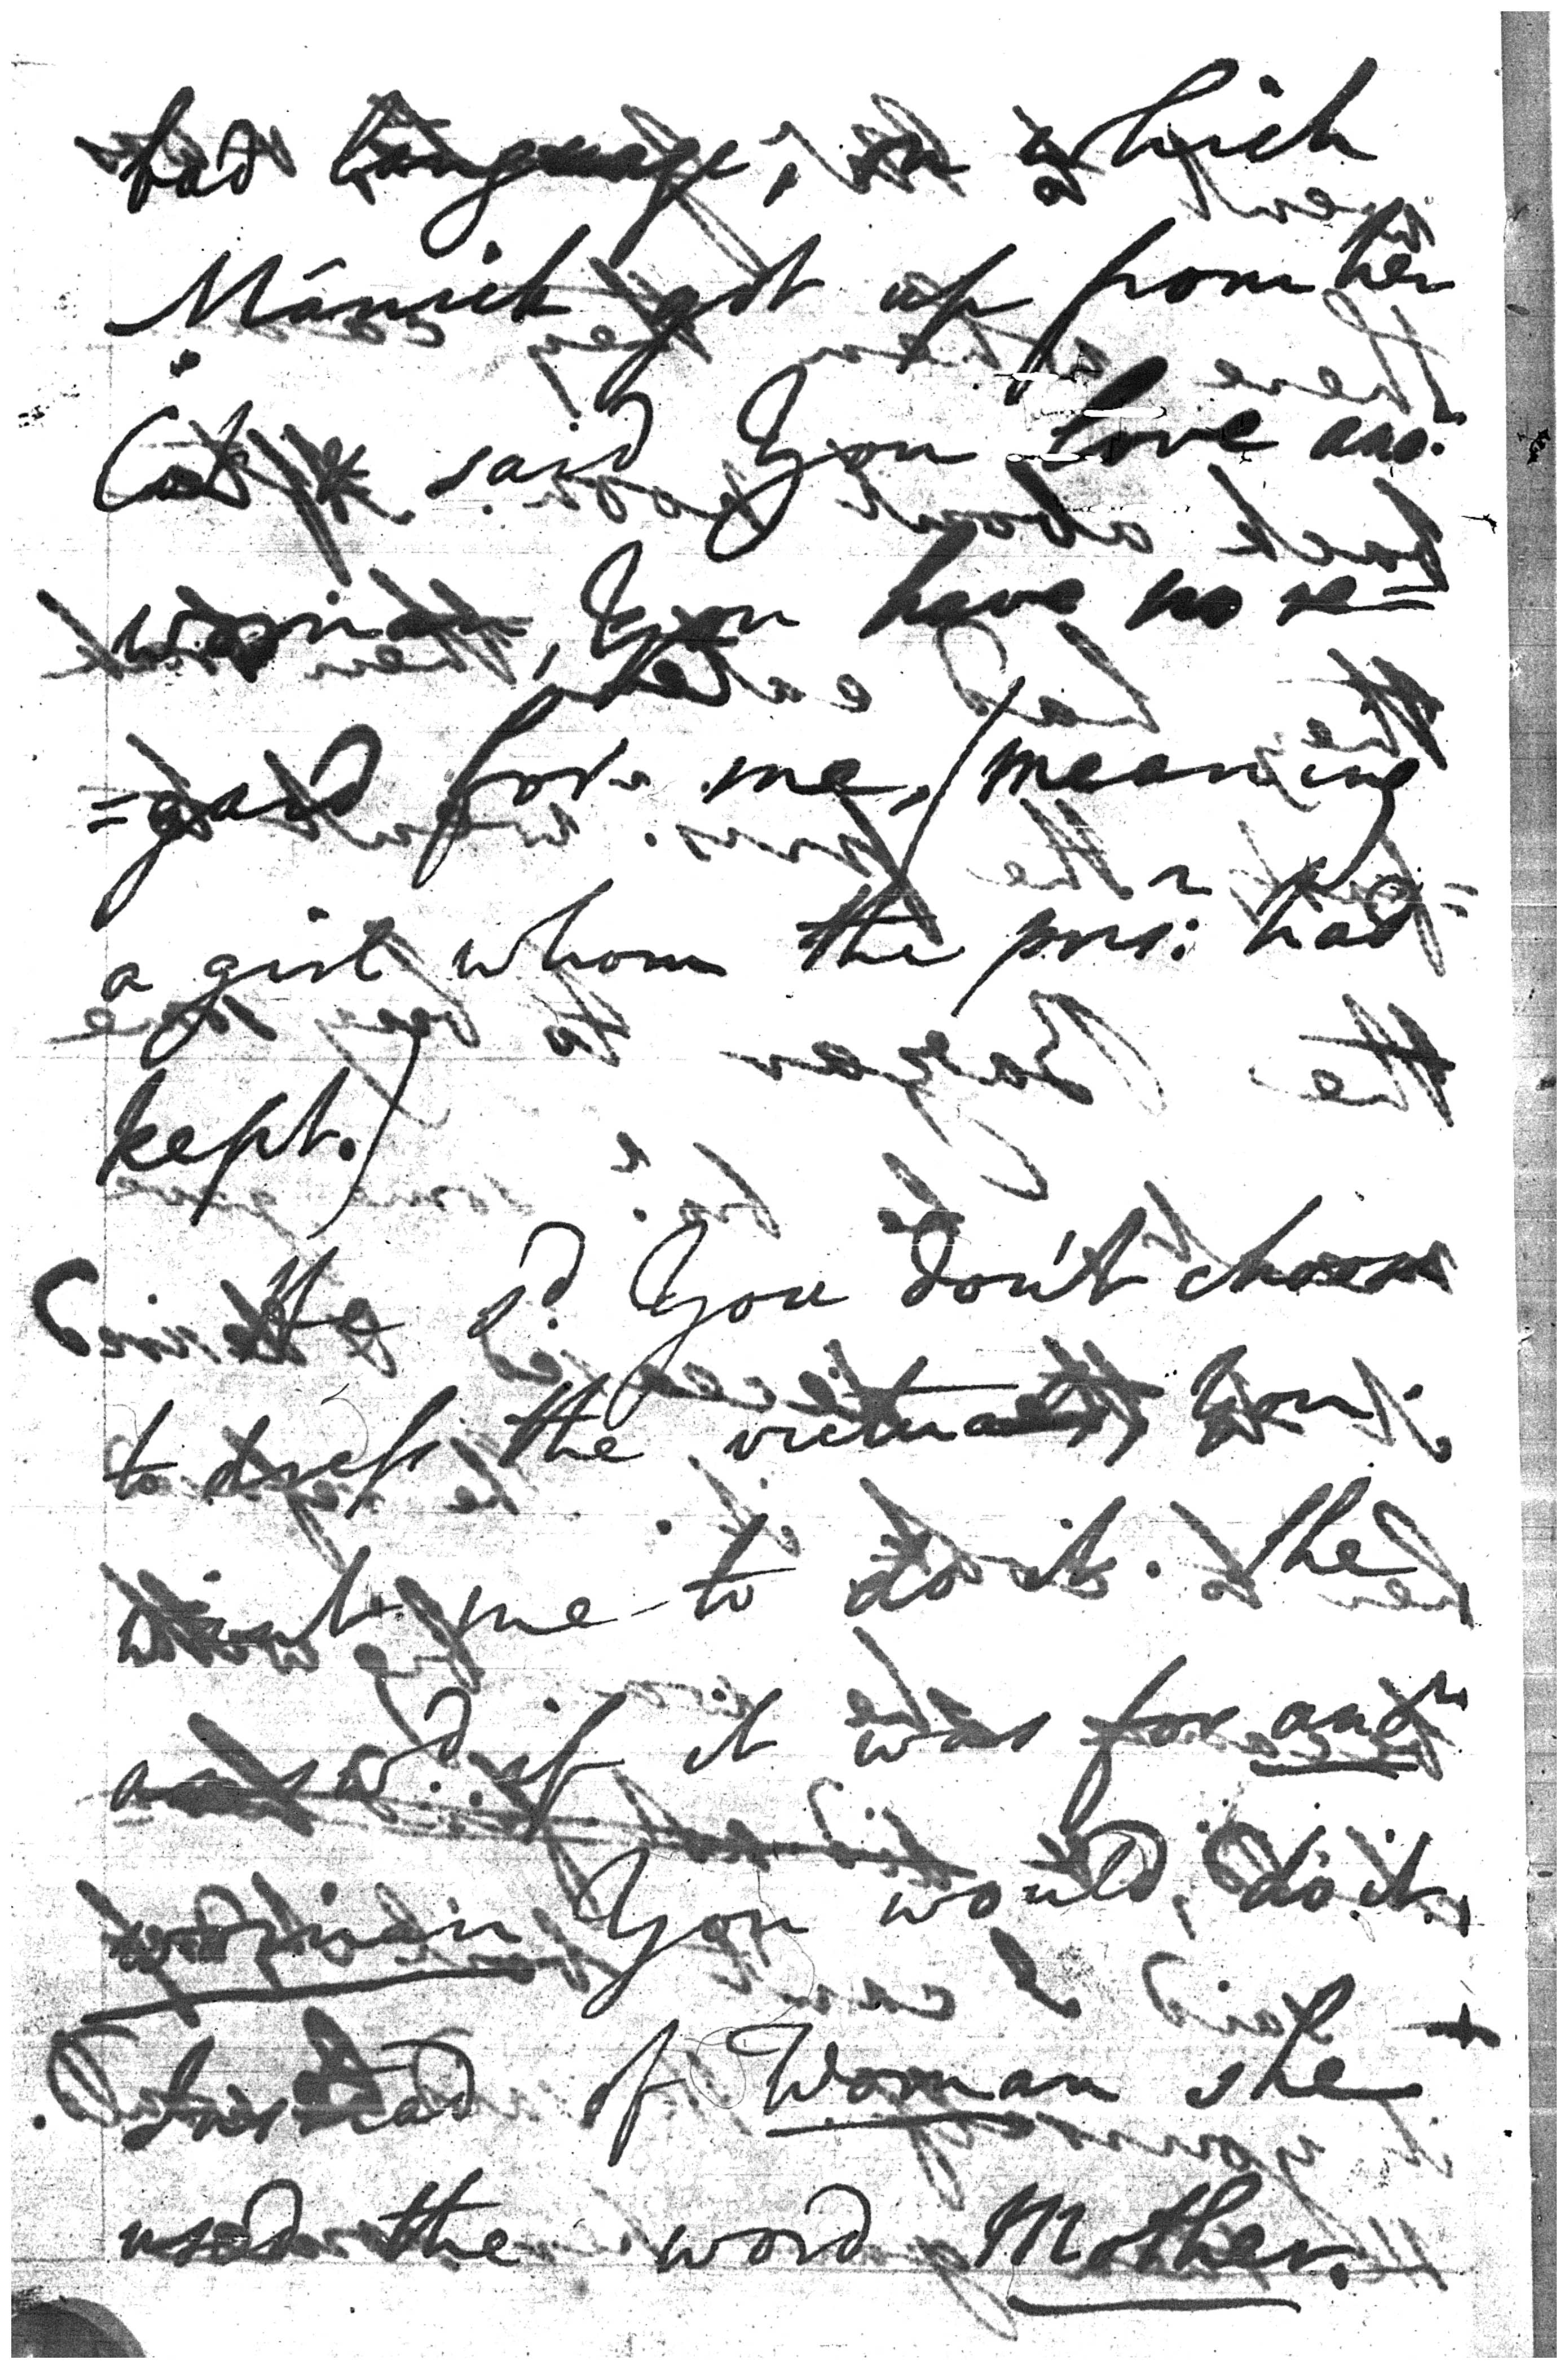 bad language, on which
Mánnick got up from her
Cot & said You love ano:
woman, You have no re=
=gard for me, (meaning
a girl whom the pris:r had
kept.)
He s.d You don't choose
to dress the victuals, You
want me to do it. She
ans.d if it was for an.r
woman You would, do it,
Instead of Woman she
used the word Mother.